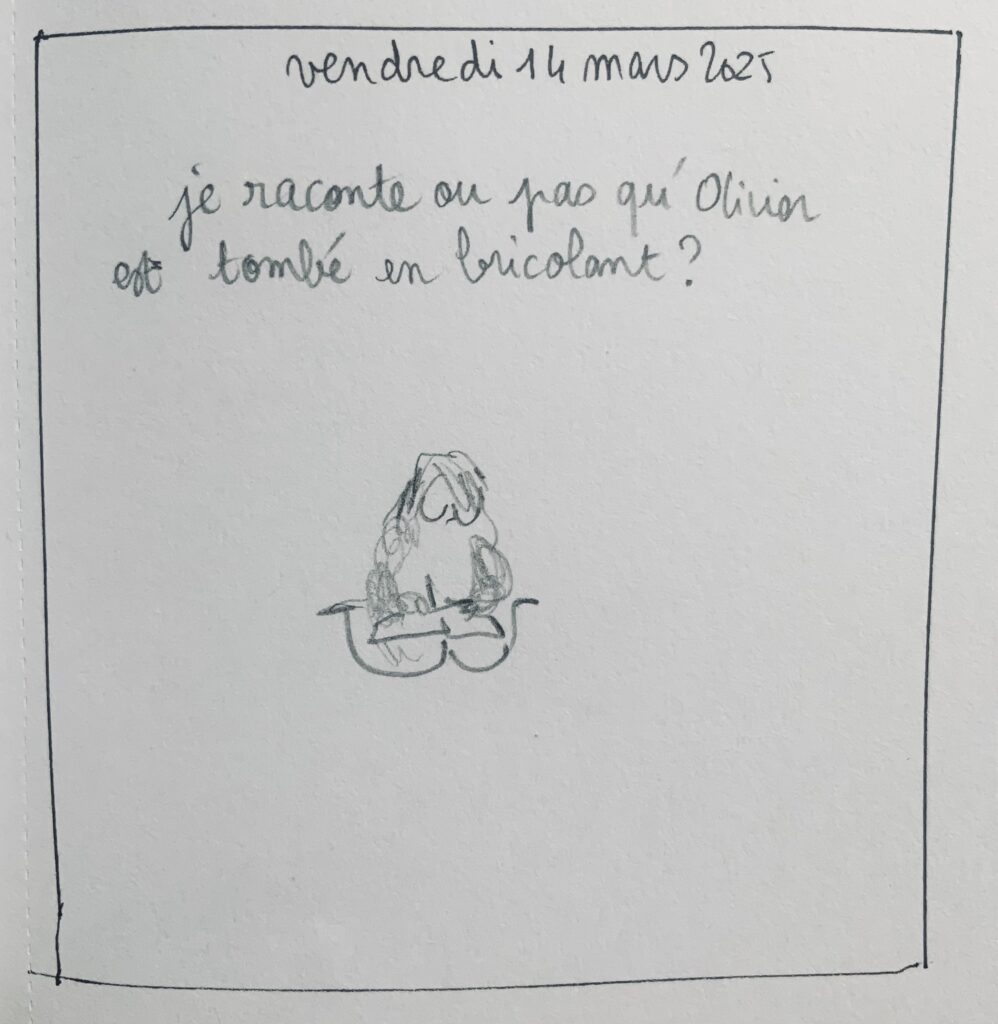 vendredi 14 mars 2025
je raconte ou pas qu'Olivier
est tombé en bricolant ?